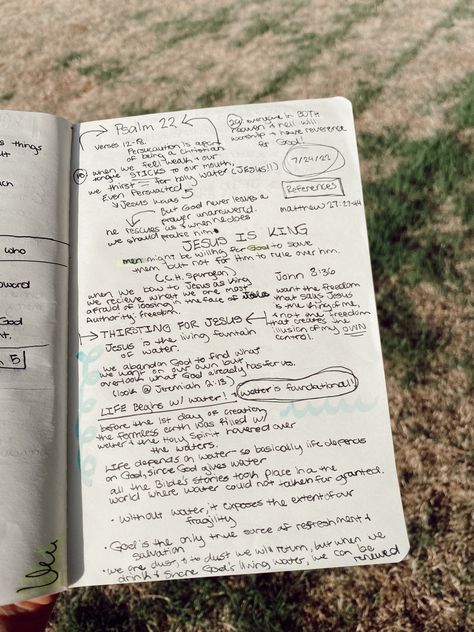 s things
ach
who
oward
God
nt.
, 5
Psalm 22
verses 12-18.
Persucaution is apart
of being a christian
when we feel weak & our
tongue STICKS to our mouth,
we thirst for holy water (JESUS!!)
Even Persuated
↳ Jesus was
But God never leaves a
prayer unanswered.
he rescues us & when he does
we should praise him
29. everyone in BOTH
heaven & hell will
worship & have reverence
for God!
7/24/22
References
matthew 27:27-44
JESUS IS KING
men might be willing for God to save
them but not for him to rule over him.
(C.H. Spurgeon)
when we bow to Jesus as King
we recieve what we are most
afraid of loosing in the face of Jesus
authority; freedom.
John 8:36
want the freedom
that says Jesus
is the King of me,
& not the freedom
that creates the
illusion of my OWN
control.
→ THIRSTING FOR JESUS
Jesus is the living fountain
of water.
we abandon God to find what
we want on our own but
overlook what God already has for us.
(look @ Jeremiah 2:13)
LIFE Begins w/ water! + water is foundational!!
before the 1st day of creation
the formless earth was filled w/
water & the Holy Spirit hovered over
the waters.
LIFE depends on water so basically life depends
on God, since God gives water
all the Bible's stories took place in a the
world where water could not taken for granted.
• Without water, it exposes the extent of our
fragility
• God is the only true sorce of refreshment &
salvation
• we are dust, & to dust we will return, but when we
drink & share God's living water, we can be renewed